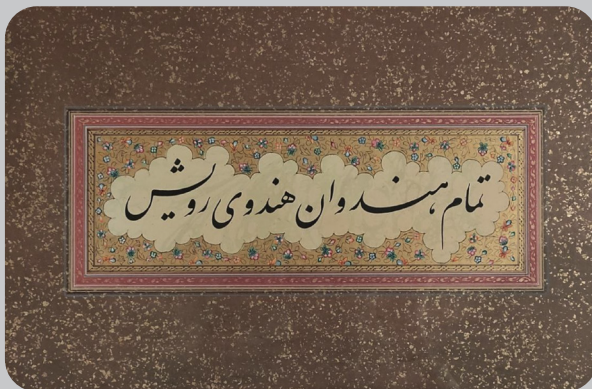 تمام هندوان هندوی رویش